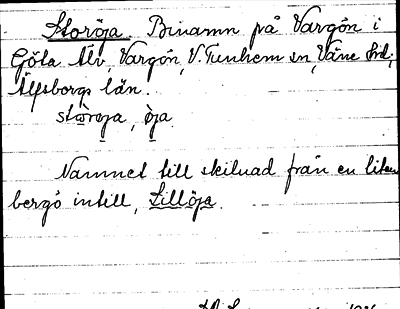 Storöja. Binamn på Vargön i
Göta Älv, Vargön, V. Tunhem sn, Väne hd,
Älfsborgs län.
stòrøja, òja.
Namnet till skilnad från en liten
bergö intill, Lillöja.